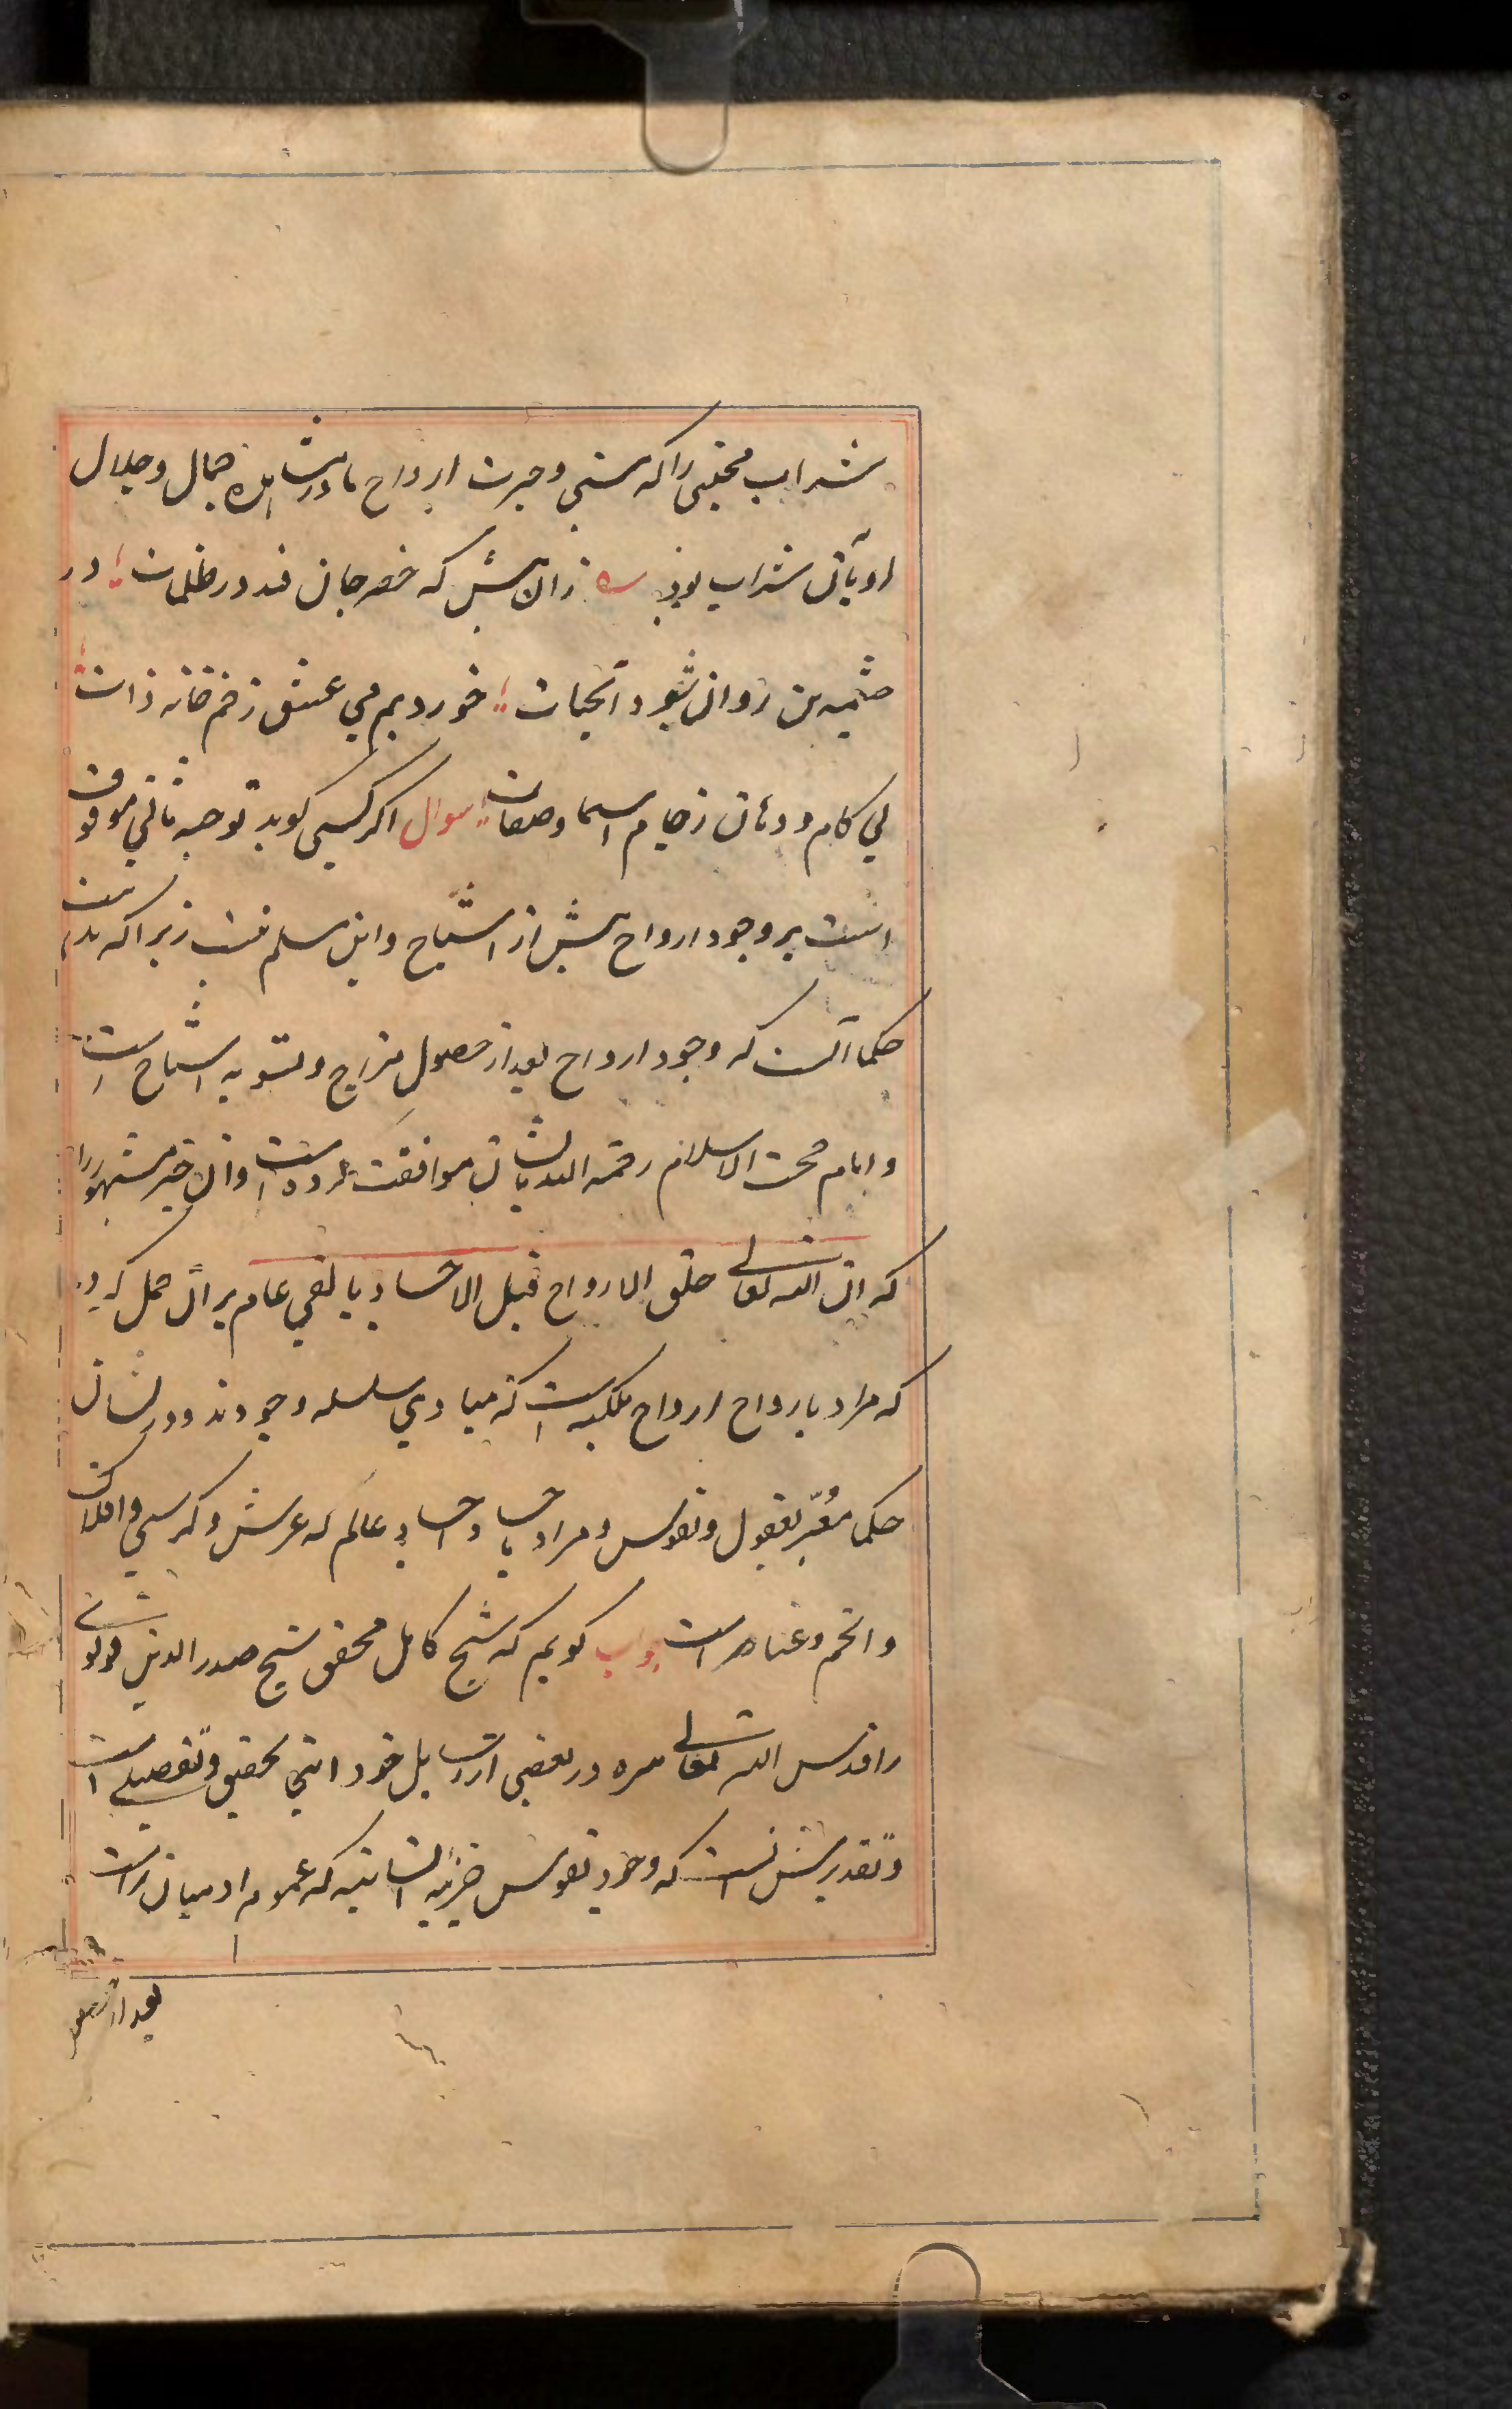 شراب محبتی را که مستی و حیرت ارواح ما در مشاهده جمال و جلال
او بآن شراب بود زان پیش که خضر جان فتد در ظلمات در
چشمه تن روان شود آبحیات خوردیم می عشق ز خمخانه ذات
بی کام و دهان ز جام اسما و صفات سوال اگر کسی گوید توجیه ثانی موقوف
است بر وجود ارواح پیش از اشباح و این مسلم نیست زیرا که مذهب
حکما آنست که وجود ارواح بعد از حصول مزاج و تسویه اشباح است
و امام حجت الاسلام رحمه الله بایشان موافقت کرده است و آن خبر مشهور را
که ان الله تعالی خلق الارواح قبل الاجساد بالفی عام بر آن حمل کرده
که مراد بارواح ارواح ملکیه است که مبادی سلسله وجودند و در لسان
حکما معبر بعقول و نفوس و مراد باجساد اجساد عالم که عرش و کرسی و افلاک
و انجم و عناصر است جواب گویم که شیخ کامل محقق شیخ صدر الدین قونوی
را قدس الله تعالی سره در بعضی از رسایل خود اینجا تحقیق و تفصیلی است
و تقدیرش آنست که وجود نفوس جزئیه انسانیه که عموم ادمیان راست
بعد از حصول